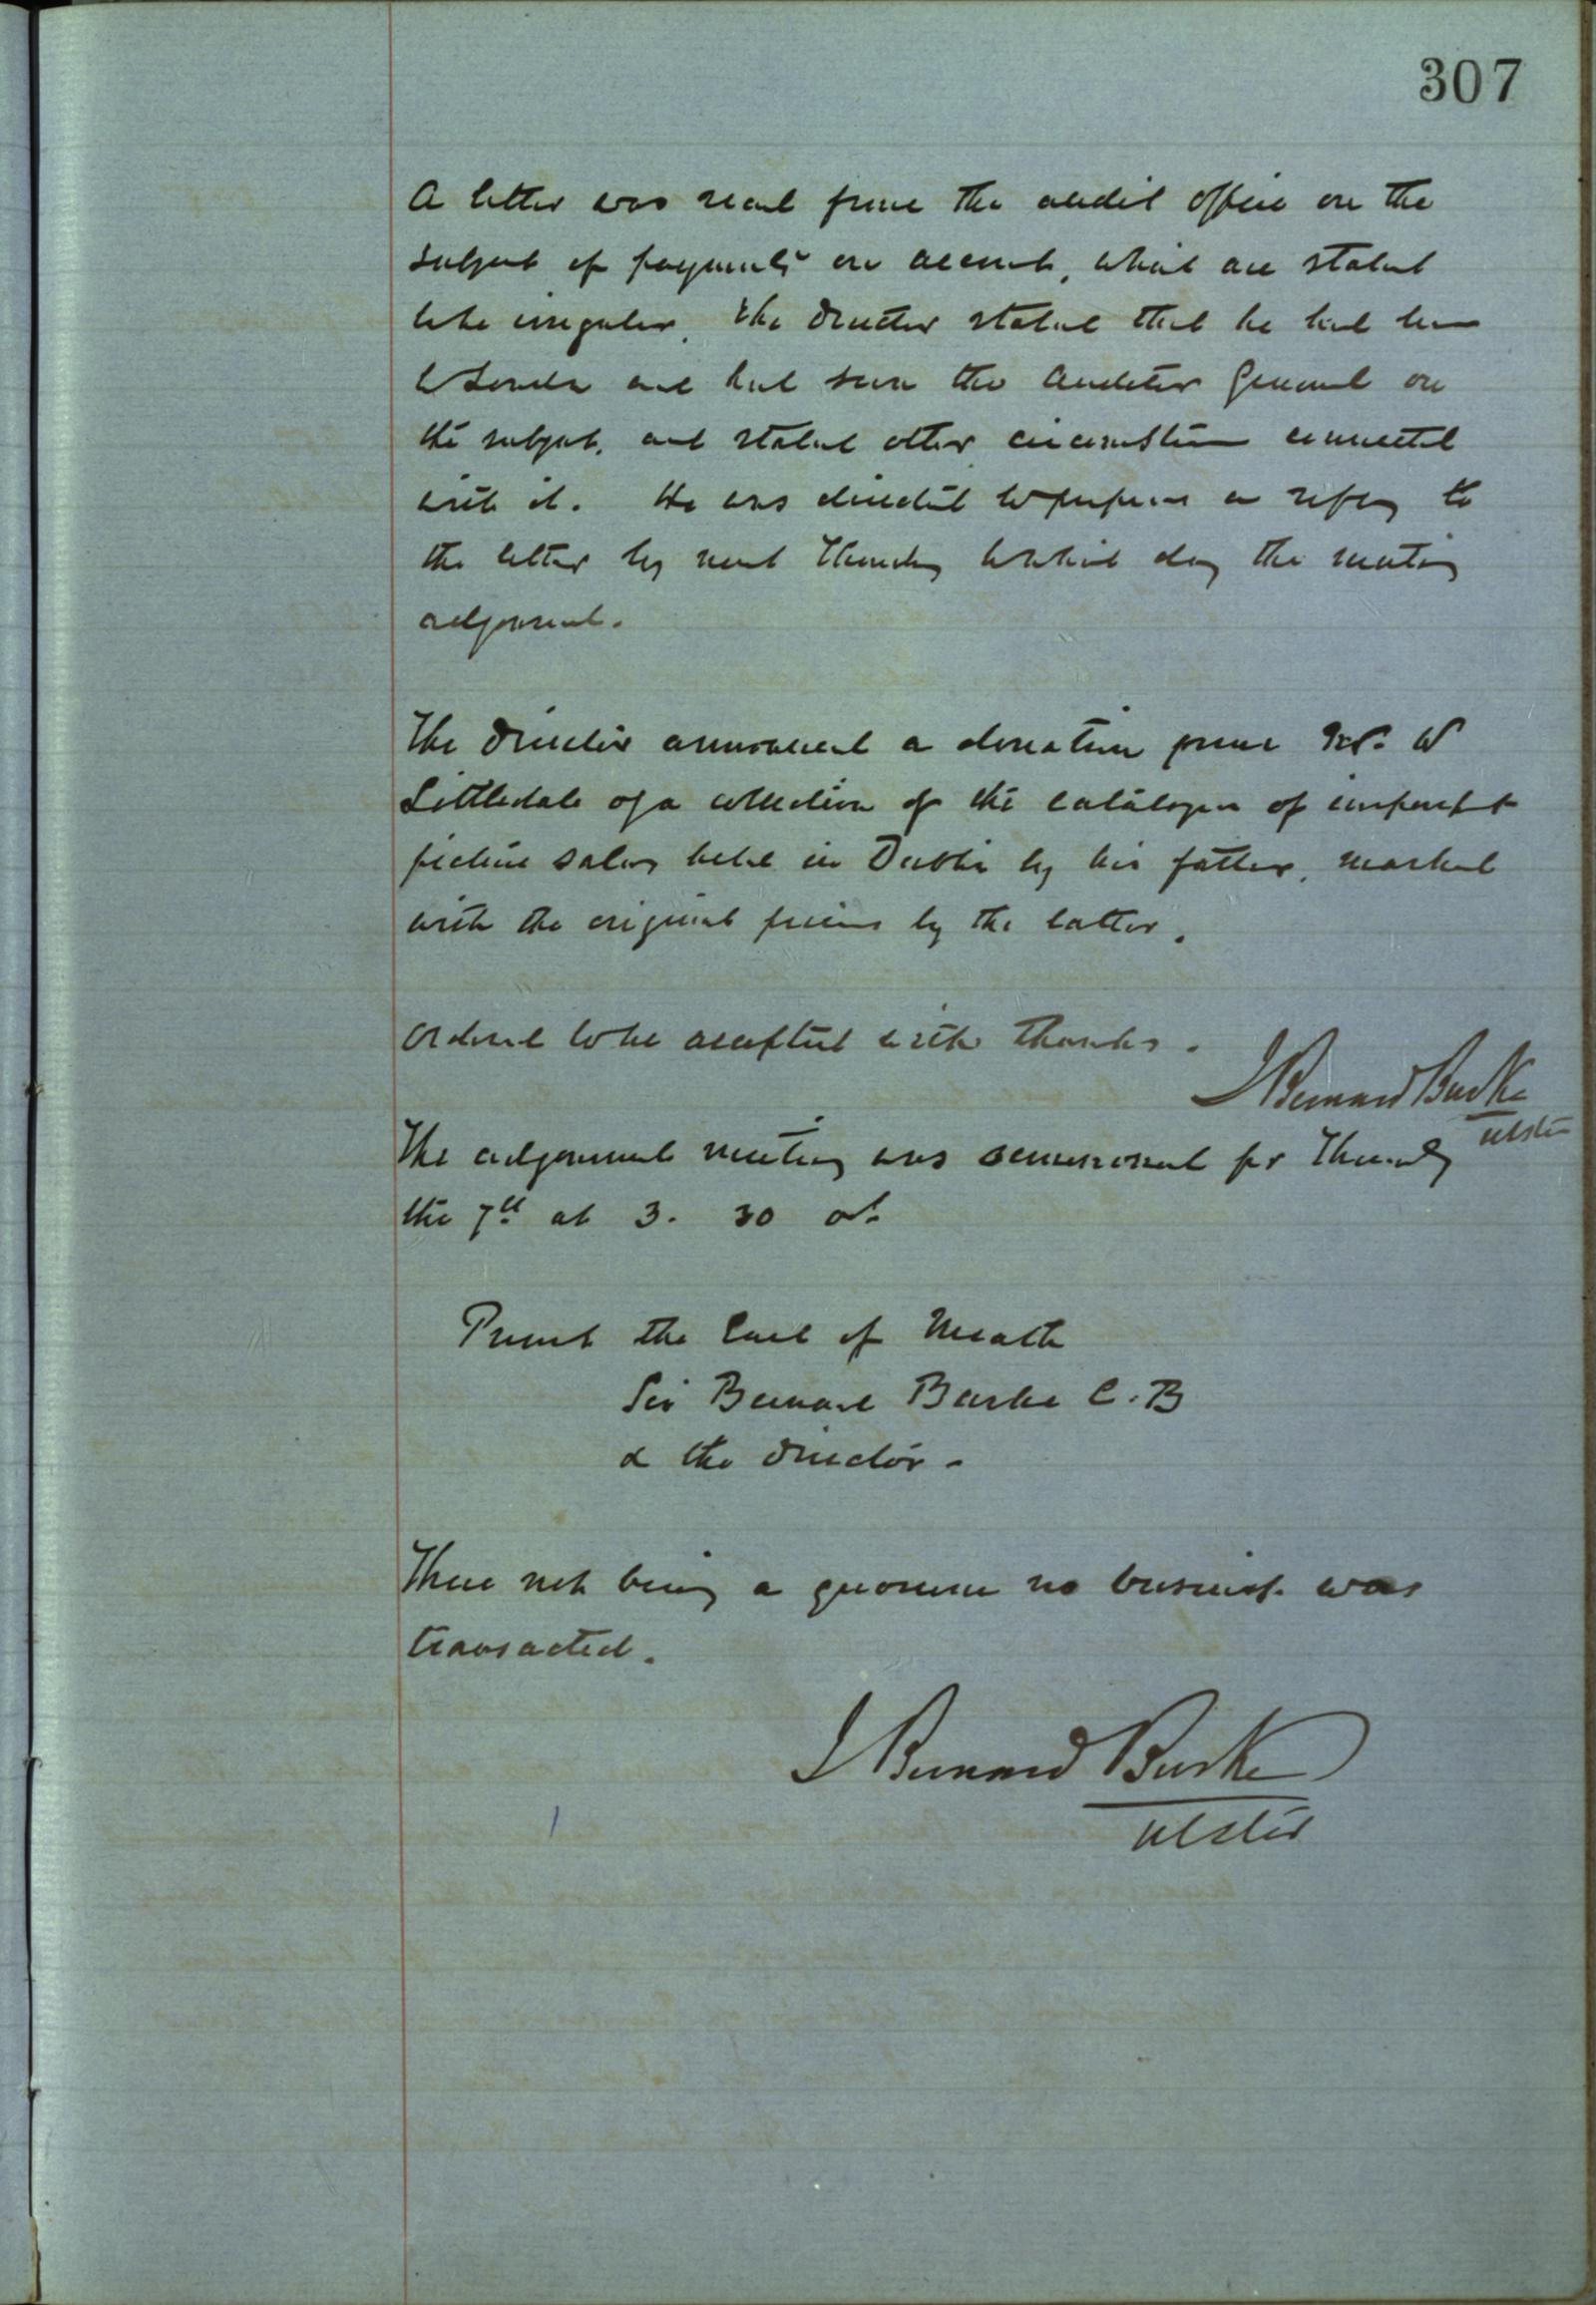 307
A letter was read from the audit office on the
subject of payments on account, which are stated
to be irregular. The Director stated that he had been
to London and had seen the Auditor General on
the subject, and stated other circumstances connected
with it. He was directed to prepare a reply to
the letter by next Thursday to which day the meeting
adjourned.
The Director announced a donation from Mr. W
Littledale of a collection of the catalogues of important
picture sales held in Dublin by his father, marked
with the original prices by the latter.
Ordered to be accepted with thanks.
J Bernard Burke
Ulster
The adjourned meeting was summoned for Thursday
the 7th at 3. 30
Present the Earl of Meath
Sir Bernard Burke C.B
& the Director -
There not being a quorum no business was
transacted.
J Bernard Burke
Ulster